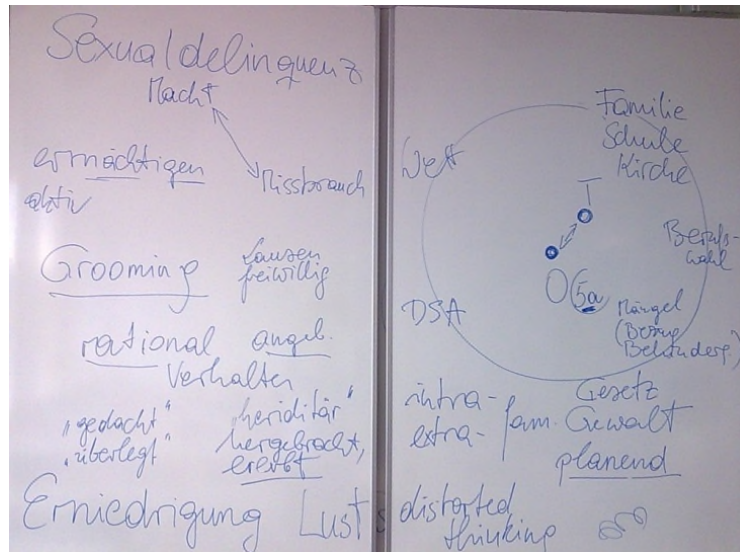 Sexualdelinquenz
Macht
ermächtigen
aktiv
Missbrauch
Grooming
freiwillig
rational angeb.
Verhalten
„gedacht“ „heriditär“
„überlegt“ hergebracht,
ererbt
Erniedrigung Lust
Familie
Schule
Kirche
T
Berufs-
wahl
O (5a
DSA
Mängel
(Bezug
Behinderg.)
intra-
extra- fam. Gewalt
Gesetz
planend
distorted
thinking